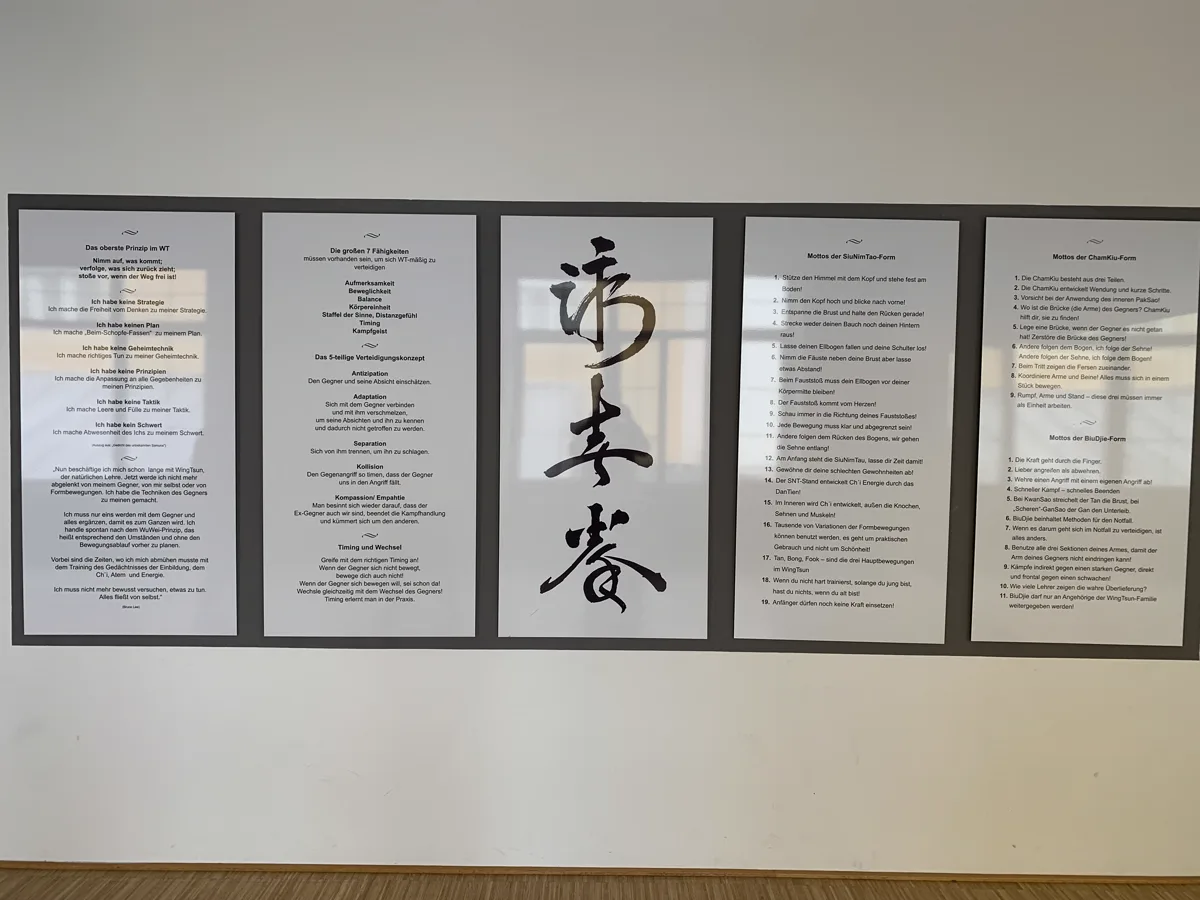 Das oberste Prinzip im WT
Nimm auf, was kommt;
verfolge, was sich zurück zieht;
stoße vor, wenn der Weg frei ist!
Ich habe keine Strategie
Ich mache die Freiheit vom Denken zu meiner Strategie.
Ich habe keinen Plan
Ich mache „Beim-Schopfe-Fassen“ zu meinem Plan.
Ich habe keine Geheimtechnik
Ich mache richtiges Tun zu meiner Geheimtechnik.
Ich habe keine Prinzipien
Ich mache die Anpassung an alle Gegebenheiten zu
meinen Prinzipien.
Ich habe keine Taktik
Ich mache Leere und Fülle zu meiner Taktik.
Ich habe kein Schwert
Ich mache Abwesenheit des Ichs zu meinem Schwert.
„Nun beschäftige ich mich schon lange mit WingTsun,
der natürlichen Lehre. Jetzt werde ich nicht mehr
abgelenkt von meinem Gegner, von mir selbst oder von
Formbewegungen. Ich habe die Techniken des Gegners
zu meinen gemacht.
Ich muss nur eins werden mit dem Gegner und
alles ergänzen, damit es zum Ganzen wird. Ich
handle spontan nach dem WuWei-Prinzip, das
heißt entsprechend den Umständen und ohne den
Bewegungsablauf vorher zu planen.
Vorbei sind die Zeiten, wo ich mich abmühen musste mit
dem Training des Gedächtnisses der Einbildung, dem
Ch'i, Atem und Energie.
Ich muss nicht mehr bewusst versuchen, etwas zu tun.
Alles fließt von selbst.“
(Bruce Lee)
Die großen 7 Fähigkeiten
müssen vorhanden sein, um sich WT-mäßig zu
verteidigen
Aufmerksamkeit
Beweglichkeit
Balance
Körpereinheit
Staffel der Sinne, Distanzgefühl
Timing
Kampfgeist
Das 5-teilige Verteidigungskonzept
Antizipation
Den Gegner und seine Absicht einschätzen.
Adaptation
Sich mit dem Gegner verbinden
und mit ihm verschmelzen,
um seine Absichten und ihn zu kennen
und dadurch nicht getroffen zu werden.
Separation
Sich von ihm trennen, um ihn zu schlagen.
Kollision
Den Gegenangriff so timen, dass der Gegner
uns in den Angriff fällt.
Kompassion/ Empahtie
Man besinnt sich wieder darauf, dass der
Ex-Gegner auch wir sind, beendet die Kampfhandlung
und kümmert sich um den anderen.
Timing und Wechsel
Greife mit dem richtigen Timing an!
Wenn der Gegner sich nicht bewegt,
bewege dich auch nicht!
Wenn der Gegner sich bewegen will, sei schon da!
Wechsle gleichzeitig mit dem Wechsel des Gegners!
Timing erlernt man in der Praxis.
詠
春
拳
Mottos der SiuNimTao-Form
1. Stütze den Himmel mit dem Kopf und stehe fest am
Boden!
2. Nimm den Kopf hoch und blicke nach vorne!
3. Entspanne die Brust und halte den Rücken gerade!
4. Strecke weder deinen Bauch noch deinen Hintern
raus!
5. Lasse deinen Ellbogen fallen und deine Schulter los!
6. Nimm die Fäuste neben deine Brust aber lasse
etwas Abstand!
7. Beim Fauststoß muss dein Ellbogen vor deiner
Körpermitte bleiben!
8. Der Fauststoß kommt vom Herzen!
9. Schau immer in die Richtung deines Fauststoßes!
10. Jede Bewegung muss klar und abgegrenzt sein!
11. Andere folgen dem Rücken des Bogens, wir gehen
die Sehne entlang!
12. Am Anfang steht die SiuNimTau, lasse dir Zeit damit!
13. Gewöhne dir deine schlechten Gewohnheiten ab!
14. Der SNT-Stand entwickelt Ch´i Energie durch das
DanTien!
15. Im Inneren wird Ch´i entwickelt, außen die Knochen,
Sehnen und Muskeln!
16. Tausende von Variationen der Formbewegungen
können benutzt werden, es geht um praktischen
Gebrauch und nicht um Schönheit!
17. Tan, Bong, Fook – sind die drei Hauptbewegungen
im WingTsun
18. Wenn du nicht hart trainierst, solange du jung bist,
hast du nichts, wenn du alt bist!
19. Anfänger dürfen noch keine Kraft einsetzen!
Mottos der ChamKiu-Form
1. Die ChamKiu besteht aus drei Teilen.
2. Die ChamKiu entwickelt Wendung und kurze Schritte.
3. Vorsicht bei der Anwendung des inneren PakSao!
4. Wo ist die Brücke (die Arme) des Gegners? ChamKiu
hilft dir, sie zu finden!
5. Lege eine Brücke, wenn der Gegner es nicht getan
hat! Zerstöre die Brücke des Gegners!
6. Andere folgen dem Bogen, ich folge der Sehne!
Andere folgen der Sehne, ich folge dem Bogen!
7. Beim Tritt zeigen die Fersen zueinander.
8. Koordiniere Arme und Beine! Alles muss sich in einem
Stück bewegen.
9. Rumpf, Arme und Stand – diese drei müssen immer
als Einheit arbeiten.
Mottos der BiuDjie-Form
1. Die Kraft geht durch die Finger.
2. Lieber angreifen als abwehren.
3. Wehre einen Angriff mit einem eigenen Angriff ab!
4. Schneller Kampf – schnelles Beenden
5. Bei KwanSao streichelt der Tan die Brust, bei
„Scheren“-GanSao der Gan den Unterleib.
6. BiuDjie beinhaltet Methoden für den Notfall.
7. Wenn es darum geht sich im Notfall zu verteidigen, ist
alles anders.
8. Benutze alle drei Sektionen deines Armes, damit der
Arm deines Gegners nicht eindringen kann!
9. Kämpfe indirekt gegen einen starken Gegner, direkt
und frontal gegen einen schwachen!
10. Wie viele Lehrer zeigen die wahre Überlieferung?
11. BiuDjie darf nur an Angehörige der WingTsun-Familie
weitergegeben werden!